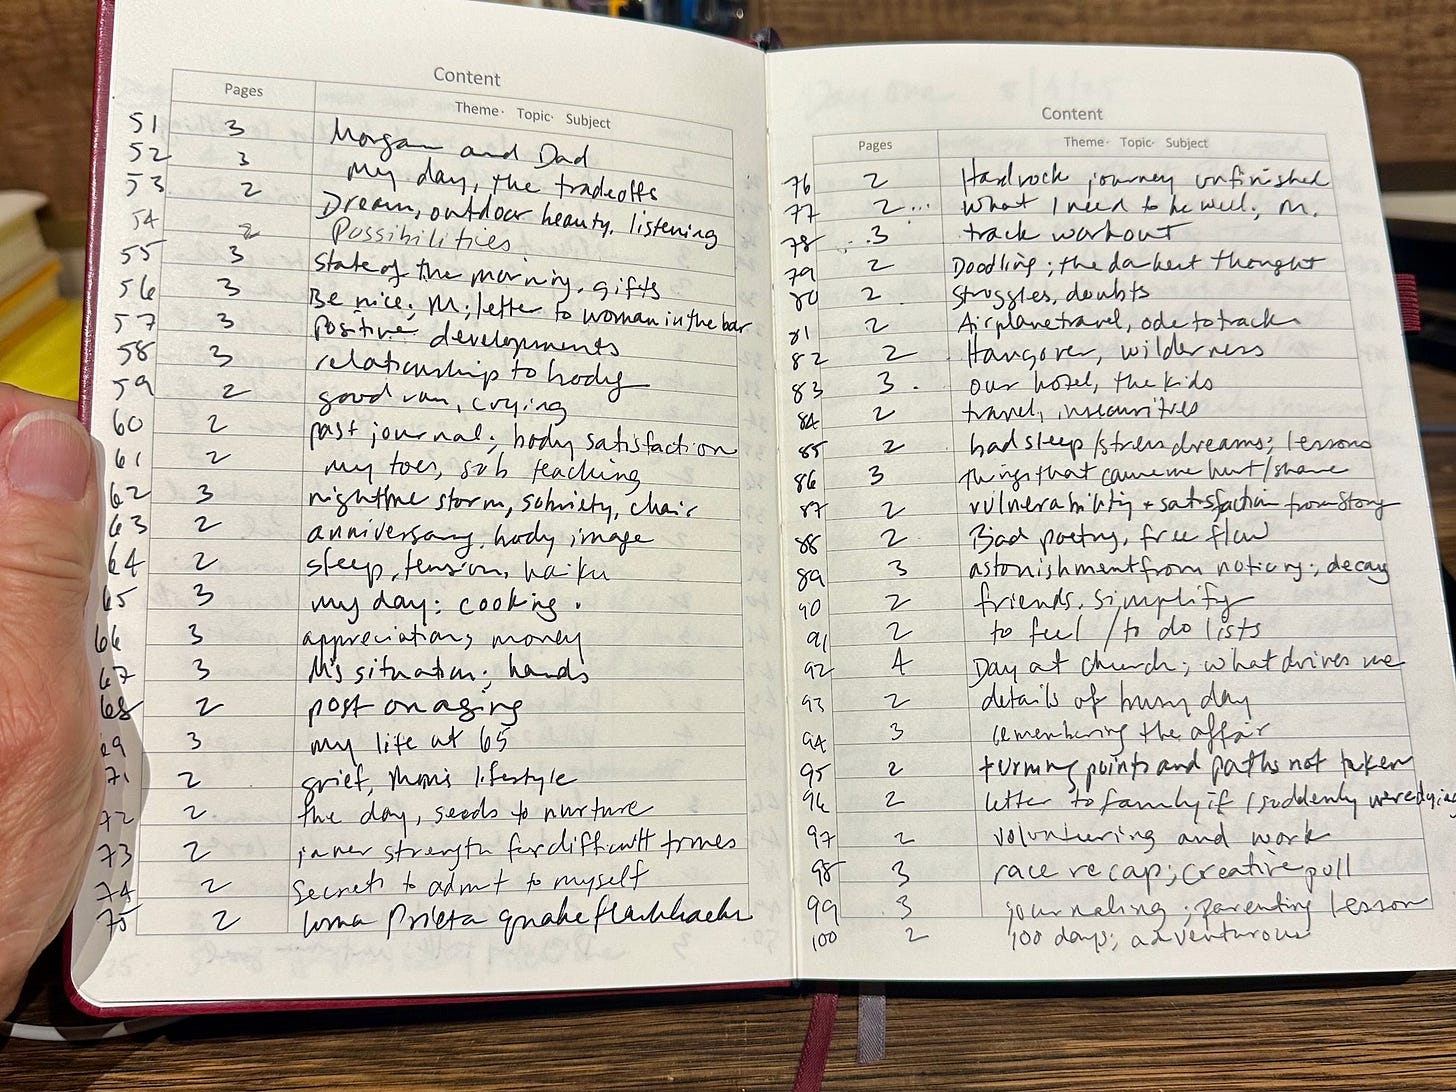 Content
Pages Theme · Topic · Subject
51 3 Morgan and Dad
52 3 My day, the tradeoffs
53 2 Dream, outdoor beauty, listening
54 2 Possibilities
55 3 state of the morning, gifts
56 3 Be nice; M; letter to woman in the bar
57 3 positive developments
58 3 relationship to body
59 2 good run, crying
60 2 past journal; body satisfaction
61 2 my toes, sub teaching
62 3 nighttime storm, sobriety, chair
63 2 anniversary, body image
64 2 sleep, tension, haiku
65 3 my day; cooking.
66 3 appreciation, money
67 3 M's situation; hands
68 2 post on aging
69 3 my life at 65
71 2 grief, Mom's lifestyle
72 2 the day, seeds to nurture
73 2 inner strength for difficult times
74 2 Secrets to admit to myself
75 2 Loma Prieta quake flashbacks
Content
Pages Theme · Topic · Subject
76 2 Hardrock journey unfinished
77 2... What I need to be well; M.
78 3 track workout
79 2 Doodling; the darkest thought
80 2 struggles, doubts
81 2 Airplane travel, ode to track
82 2 Hangover, wilderness
83 3 our hotel, the kids
84 2 travel, insecurities
85 2 bad sleep/stress dreams; lessons
86 3 things that cause me hurt/shame
87 2 vulnerability + satisfaction from story
88 2 Bad poetry, free flow
89 3 astonishment from noticing; decay
90 2 friends, simplify
91 2 to feel / to do lists
92 4 Day at church; what drives me
93 2 details of busy day
94 3 remembering the affair
95 2 turning points and paths not taken
96 2 letter to family if I suddenly were dying
97 2 volunteering and work
98 3 race recap; creative pull
99 3 journaling; parenting lesson
100 2 100 days; adventurous